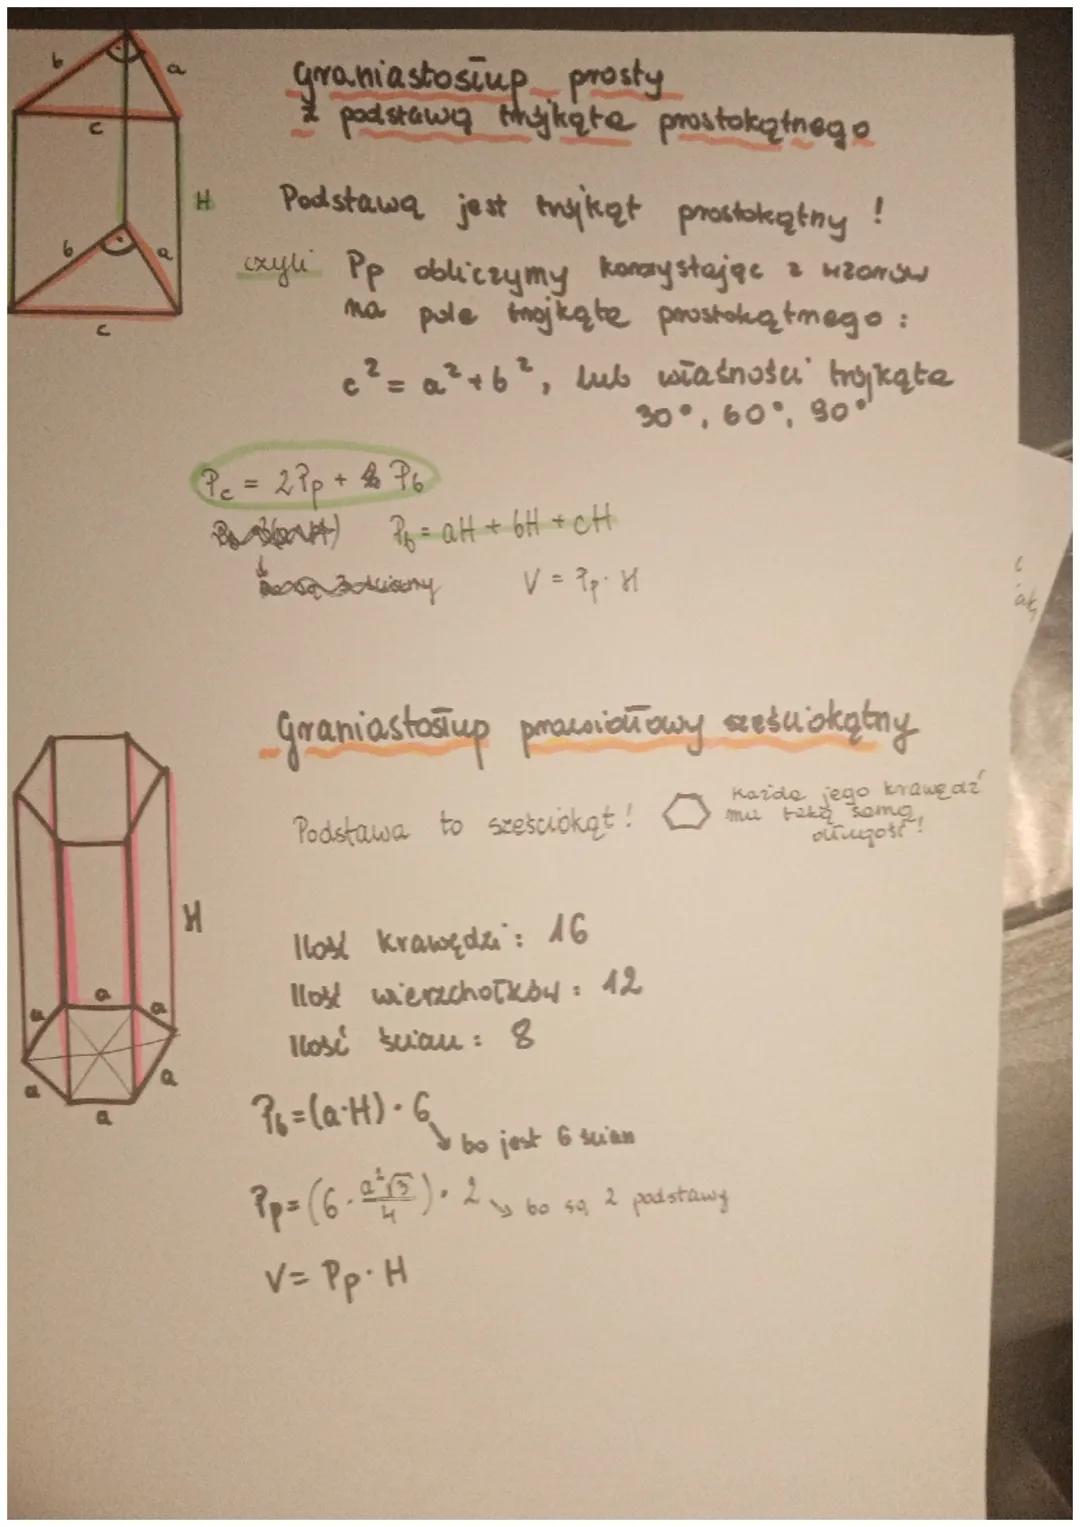 b a
c
H
b a
c
Graniastosłup prosty
z podstawą trójkąta prostokątnego
Podstawą jest trójkąt prostokątny !
czyli Pp obliczymy korzystając z wzorów
na pole trojkąta prostokątnego :
c² = a² + b², lub własności trójkąta
30°, 60°, 90°
Pc = 2Pp + Pb
Pb = aH + bH + cH
V = Pp · H
Graniastosłup prawidłowy sześciokątny
Podstawa to sześciokąt !
Każda jego krawędź
ma taką samą
długość !
H
Ilość krawędzi : 16
Ilość wierzchołków : 12
Ilość ścian : 8
a
a a
a a
a
Pb = (a·H) · 6
bo jest 6 ścian
Pp = (6 · a²√3/4) · 2 bo są 2 podstawy
V = Pp · H